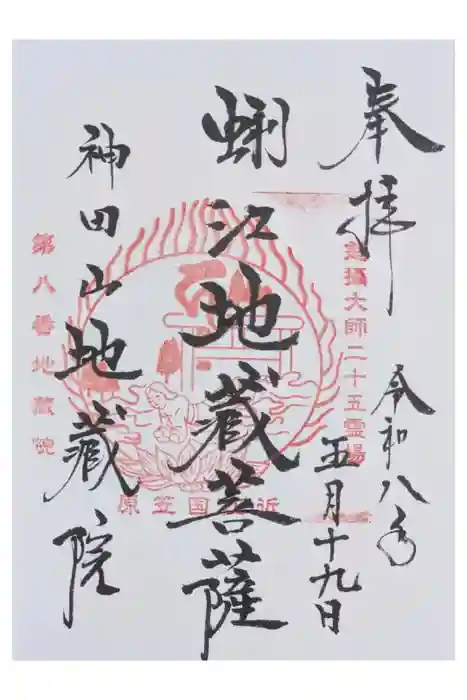 奉拝
令和八年
五月十九日
蜊江地蔵菩薩
神田山地蔵院
慈攝大師二十五霊場
第八番地蔵院
近 国笠原